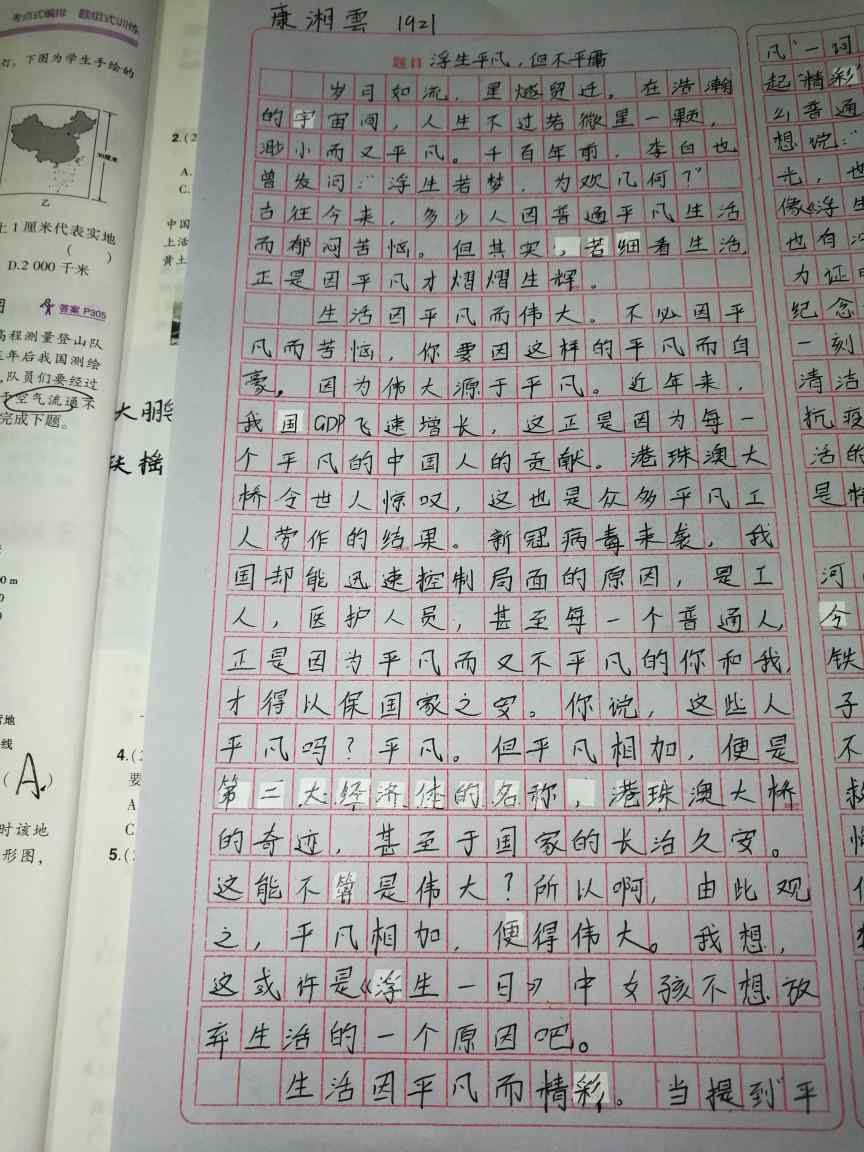 康湘雲 1921
题目 浮生平凡,但不平庸
岁月如流,星燧贸迁。在浩瀚
的宇宙间,人生不过若微星一颗,
渺小而又平凡。千百年前,李白也
曾发问:“浮生若梦,为欢几何?”
古往今来,多少人因普通平凡生活
而郁闷苦恼。但其实,若细看生活,
正是因平凡才熠熠生辉。
生活因平凡而伟大。不必因平
凡而苦恼,你要因这样的平凡而自
豪,因为伟大源于平凡。近年来,
我国GDP飞速增长,这正是因为每一
个平凡的中国人的贡献。港珠澳大
桥令世人惊叹,这也是众多平凡工
人劳作的结果。新冠病毒来袭,我
国却能迅速控制局面的原因,是工
人,医护人员,甚至每一个普通人,
正是因为平凡而又不平凡的你和我,
才得以保国家之安。你说,这些人
平凡吗?平凡。但平凡相加,便是
第二大经济体的名称,港珠澳大桥
的奇迹,甚至于国家的长治久安。
这能不算是伟大?所以啊,由此观
之,平凡相加,便得伟大。我想,
这或许是《浮生一日》中女孩不想放
弃生活的一个原因吧。
生活因平凡而精彩。当提到“平
凡”一词
起“精彩”
么普通
想说:“
光,也
像《浮生
也有
力证明
纪念
一刻
清洁
抗疫
活的
是
河
令
铁
子
不
救
考点式编排 题组式训练
下图为学生手绘的
乙
上1厘米代表实地
( )
D.2 000 千米
答案 P305
高程测量登山队
年后我国测绘
,队员们要经过
空气流通不
完成下题。
大鹏
扶摇
2.(2
A.
C.
中国
上活
黄土
0 m
营地
线
(A.)
时该地
形图,
4.(
要
A
C
5.(